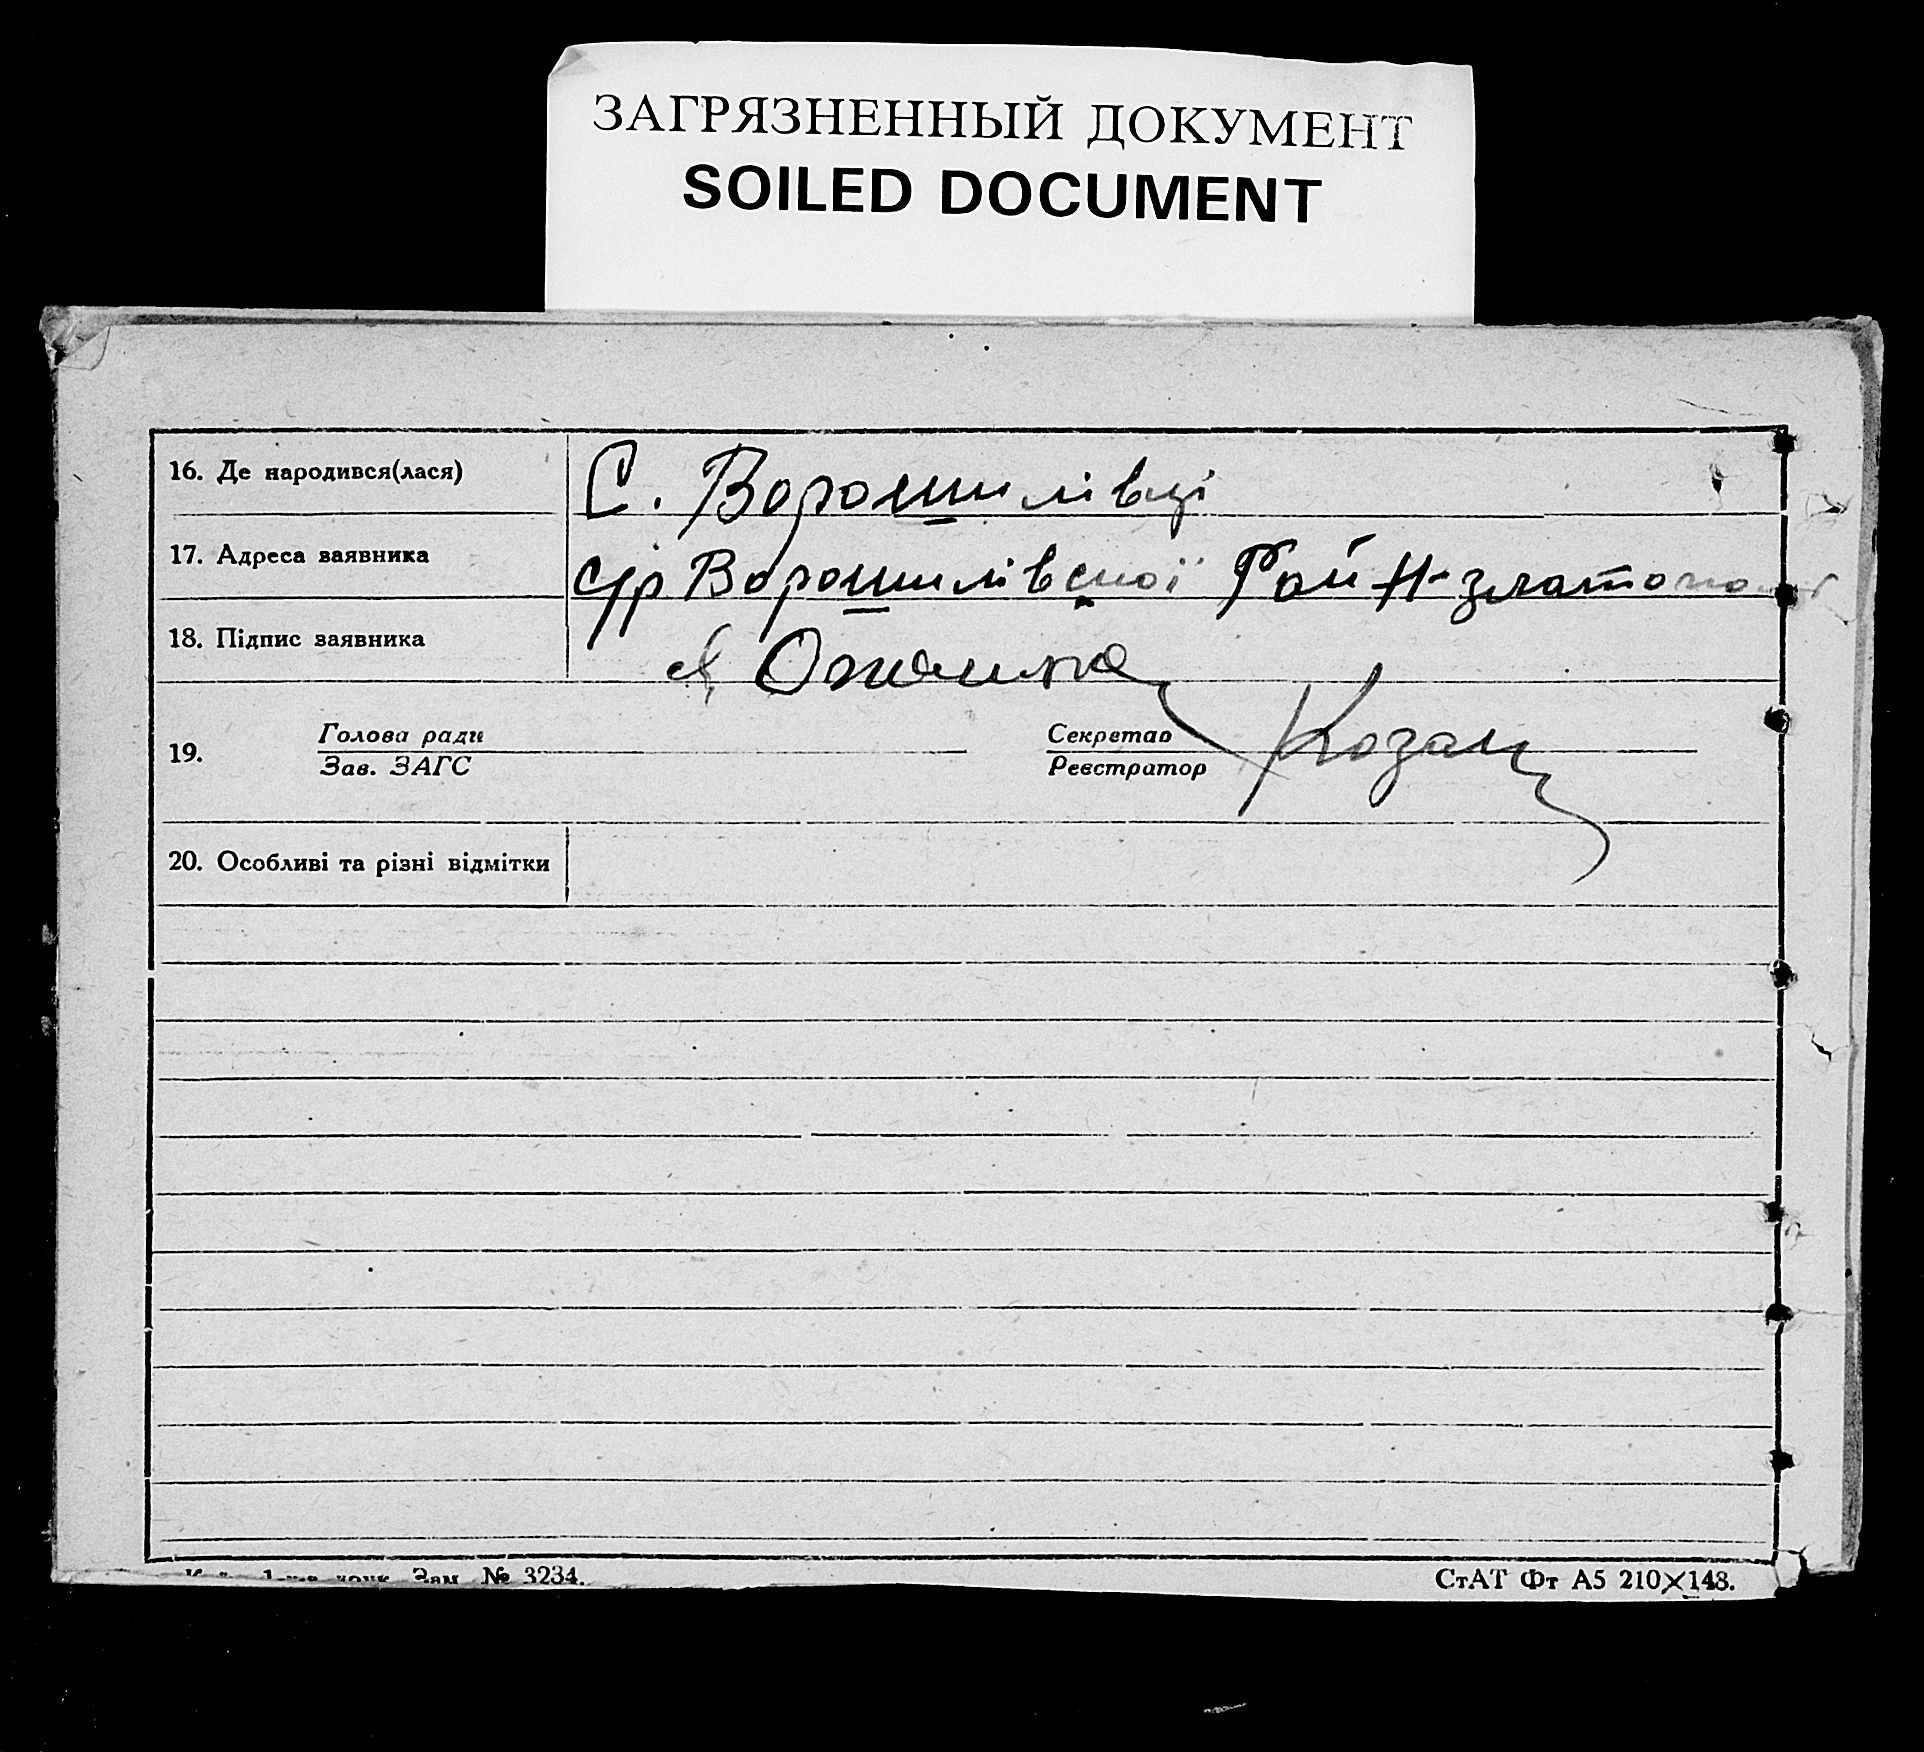 ЗАГРЯЗНЕННЫЙ ДОКУМЕНТ
SOILED DOCUMENT
16. Де народився(лася) С. Ворошилівці
17. Адреса заявника с/р Ворошилівської Рай Н-златопо
18. Підпис заявника
19. Голова ради Секретар Козац
Зав. ЗАГС Реєстратор
20. Особливі та різні відмітки
Зам. № 3234. СтАТ Фт А5 210×148.